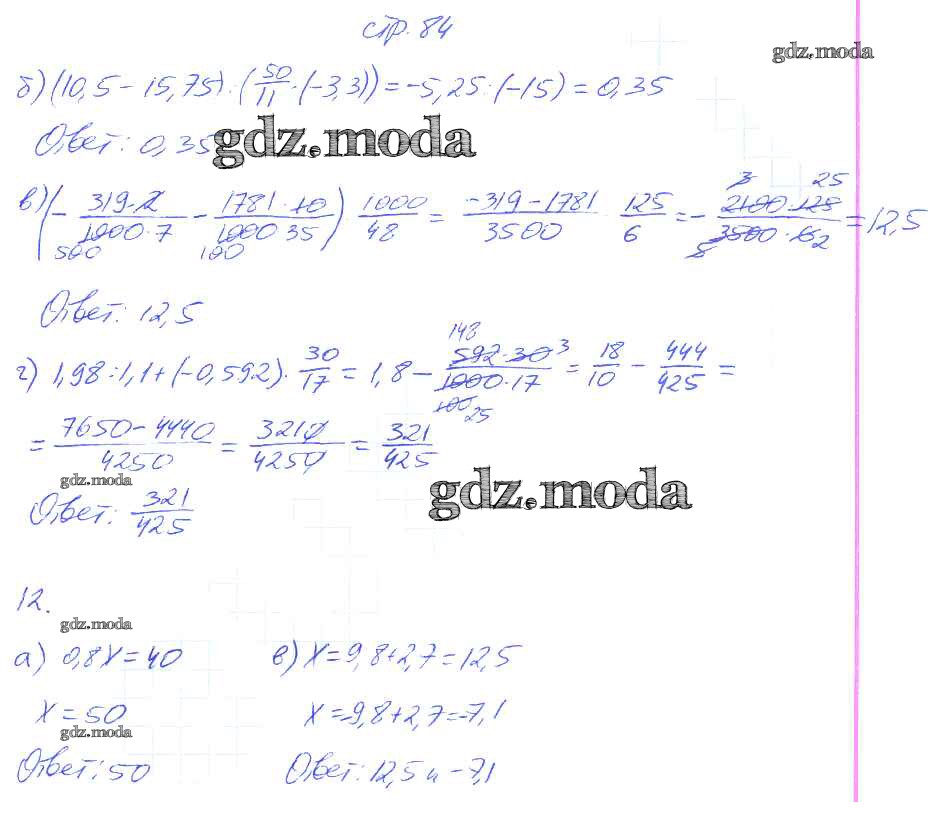 стр. 84
gdz.moda
б) (10,5 - 15,75) : (50/11 · (-3,3)) = -5,25 : (-15) = 0,35
Ответ: 0,35
gdz.moda
в) (- 319·2/1000·7 - 1781·10/1000·35) · 1000/48 = -319-1781/3500 · 125/6 = - 2100·125/3500·6 = 12,5
500 100 3 25 5 2
Ответ: 12,5
г) 1,98 : 1,1 + (-0,592) · 30/17 = 1,8 - 592·30/1000·17 = 18/10 - 444/425 =
148 3 100 25
= 7650-4440/4250 = 3210/4250 = 321/425
gdz.moda
gdz.moda
Ответ: 321/425
12.
gdz.moda
а) 0,8X = 40
в) X = 9,8 + 2,7 = 12,5
X = 50
X = -9,8 + 2,7 = -7,1
gdz.moda
Ответ: 50
Ответ: 12,5 и -7,1